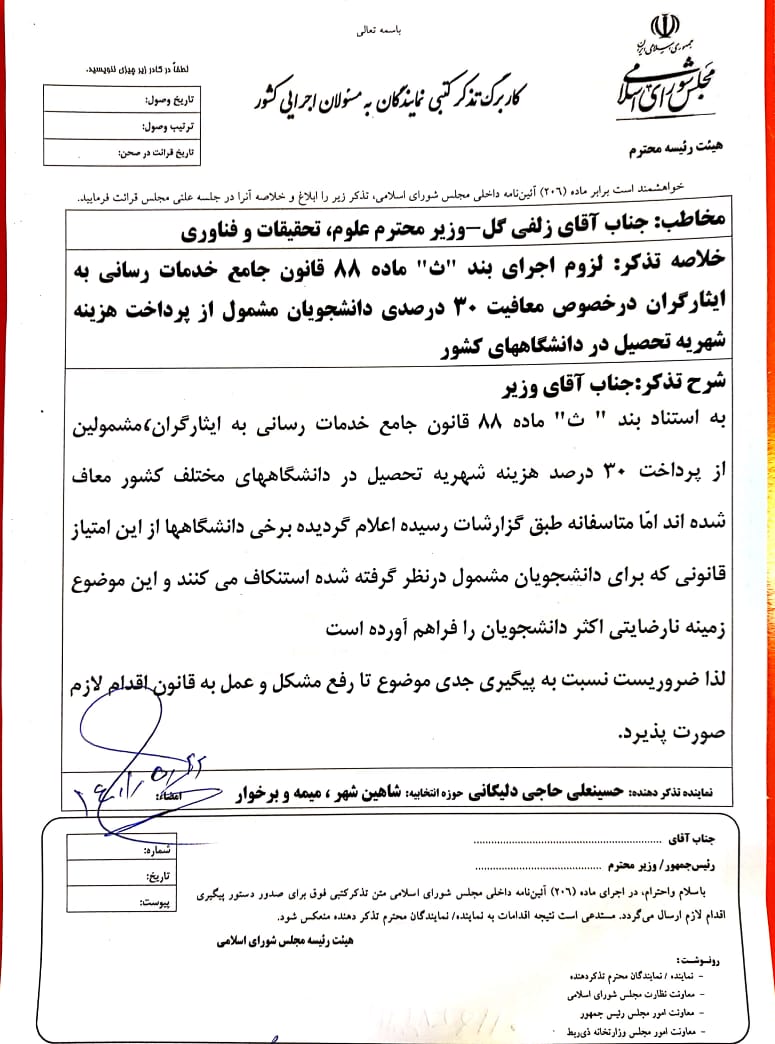 باسمه تعالی
جمهوری اسلامی ایران
مجلس شورای اسلامی
کاربرگ تذکر کتبی نمایندگان به مسئولان اجرایی کشور
لطفاً در کادر زیر چیزی ننویسید.
تاریخ وصول:
ترتیب وصول:
تاریخ قرائت در صحن:
هیئت رئیسه محترم
خواهشمند است برابر ماده (۲۰۶) آئین‌نامه داخلی مجلس شورای اسلامی، تذکر زیر را ابلاغ و خلاصه آنرا در جلسه علنی مجلس قرائت فرمایید.
مخاطب: جناب آقای زلفی گل-وزیر محترم علوم، تحقیقات و فناوری
خلاصه تذکر: لزوم اجرای بند "ث" ماده ۸۸ قانون جامع خدمات رسانی به
ایثارگران درخصوص معافیت ۳۰ درصدی دانشجویان مشمول از پرداخت هزینه
شهریه تحصیل در دانشگاههای کشور
شرح تذکر:جناب آقای وزیر
به استناد بند " ث" ماده ۸۸ قانون جامع خدمات رسانی به ایثارگران،مشمولین
از پرداخت ۳۰ درصد هزینه شهریه تحصیل در دانشگاههای مختلف کشور معاف
شده اند امّا متاسفانه طبق گزارشات رسیده اعلام گردیده برخی دانشگاهها از این امتیاز
قانونی که برای دانشجویان مشمول درنظر گرفته شده استنکاف می کنند و این موضوع
زمینه نارضایتی اکثر دانشجویان را فراهم آورده است
لذا ضروریست نسبت به پیگیری جدی موضوع تا رفع مشکل و عمل به قانون اقدام لازم
صورت پذیرد.
نماینده تذکر دهنده: حسینعلی حاجی دلیگانی حوزه انتخابیه: شاهین شهر ، میمه و برخوار امضاء:
جناب آقای ........................................
رئیس‌جمهور/ وزیر محترم ........................................
شماره:
تاریخ:
پیوست:
باسلام واحترام، در اجرای ماده (۲۰۶) آئین‌نامه داخلی مجلس شورای اسلامی متن تذکرکتبی فوق برای صدور دستور پیگیری
اقدام لازم ارسال می‌گردد. مستدعی است نتیجه اقدامات به نماینده/ نمایندگان محترم تذکر دهنده منعکس شود.
هیئت رئیسه مجلس شورای اسلامی
رونوشت:
- نماینده / نمایندگان محترم تذکردهنده
- معاونت نظارت مجلس شورای اسلامی
- معاونت امور مجلس رئیس جمهور
- معاونت امور مجلس وزارتخانه ذی‌ربط